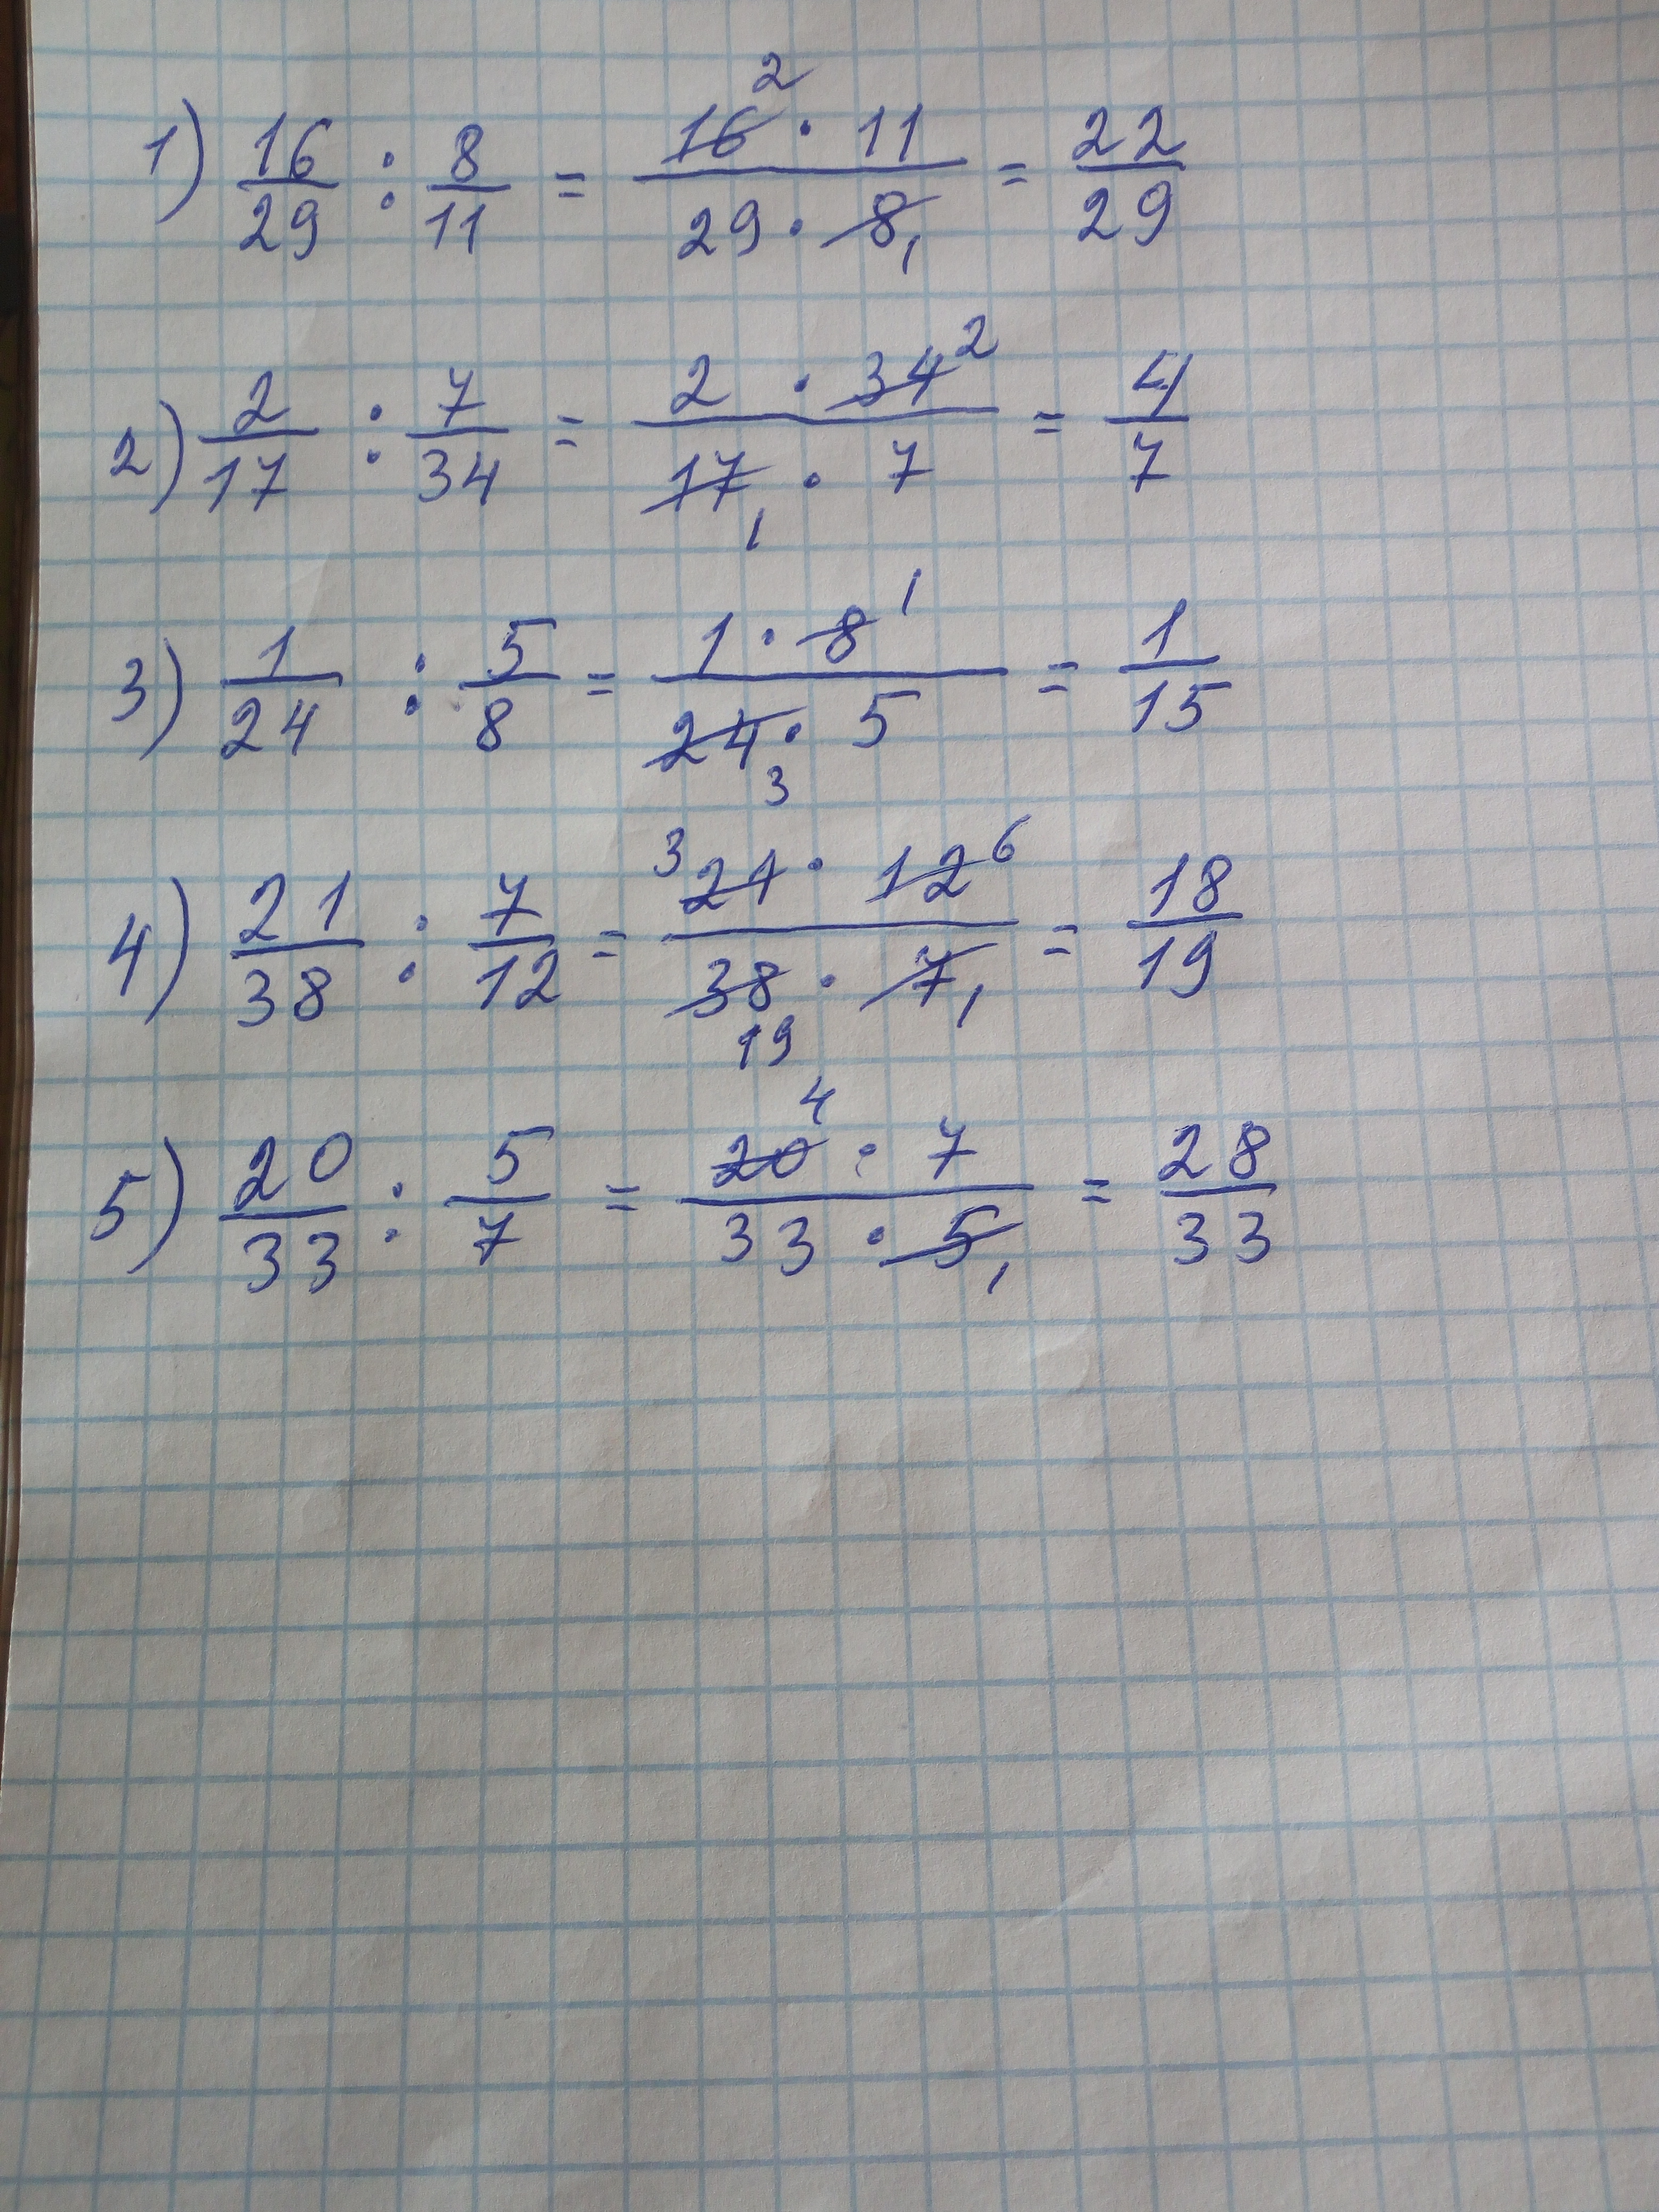 1) 16/29 : 8/11 = 16² · 11 / 29 · 8₁ = 22/29
2) 2/17 : 7/34 = 2 · 34² / 17₁ · 7 = 4/7
3) 1/24 : 5/8 = 1 · 8¹ / 24₃ · 5 = 1/15
4) 21/38 : 7/12 = ³21 · 12⁶ / 38₁₉ · 7₁ = 18/19
5) 20/33 : 5/7 = 20⁴ · 7 / 33 · 5₁ = 28/33